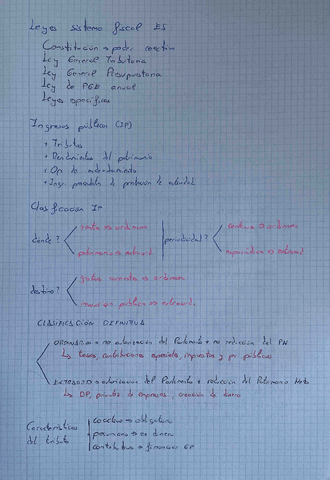 Leyes sistema fiscal ES
Constitución → poder coactivo
Ley General Tributaria
Ley General Presupuestaria
Ley de PGE anual
Leyes específicas
Ingresos públicos (IP)
• Tributos
• Rendimientos del patrimonio
• Op. de endeudamiento
• Ingr. procedentes de prestación de actividad
Clasificación IP
donde? renta → ordinarios
patrimonio → extraord.
periodicidad? continua → ordinarios
esporádica → extraord.
destino? gastos corrientes → ordinar.
inversión pública → extraord.
CLASIFICACIÓN DEFINITIVA
ORDINARIOS → no autorización del Parlamento + no reducción del PN
↳ tasas, contribuciones especiales, impuestos y pr públicos
EXTRAORD → autorización del Parlamento + reducción del Patrimonio Neto
↳ DP, privatiz de empresas, creación de dinero
Características del tributo
coactivo → obligatorio
pecuniario → en dinero
contributivo → financiar GP